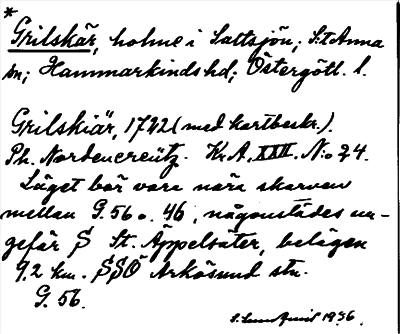 *
Grilskär, holme i Saltsjön; S:t Anna
sn; Hammarkinds hd; Östergötl. l.
Grilskiär, 1742 (med kartbeskr.).
Ph. Nordencreütz. Kr.A. XXII. N:o 24.
Läget bör vara nära skarven
mellan G. 56 o. 46, någonstädes un-
gefär S St. Äppelsäter, belägen
9.2 km. SSÖ Arkösund stn.
G. 56.
1936.